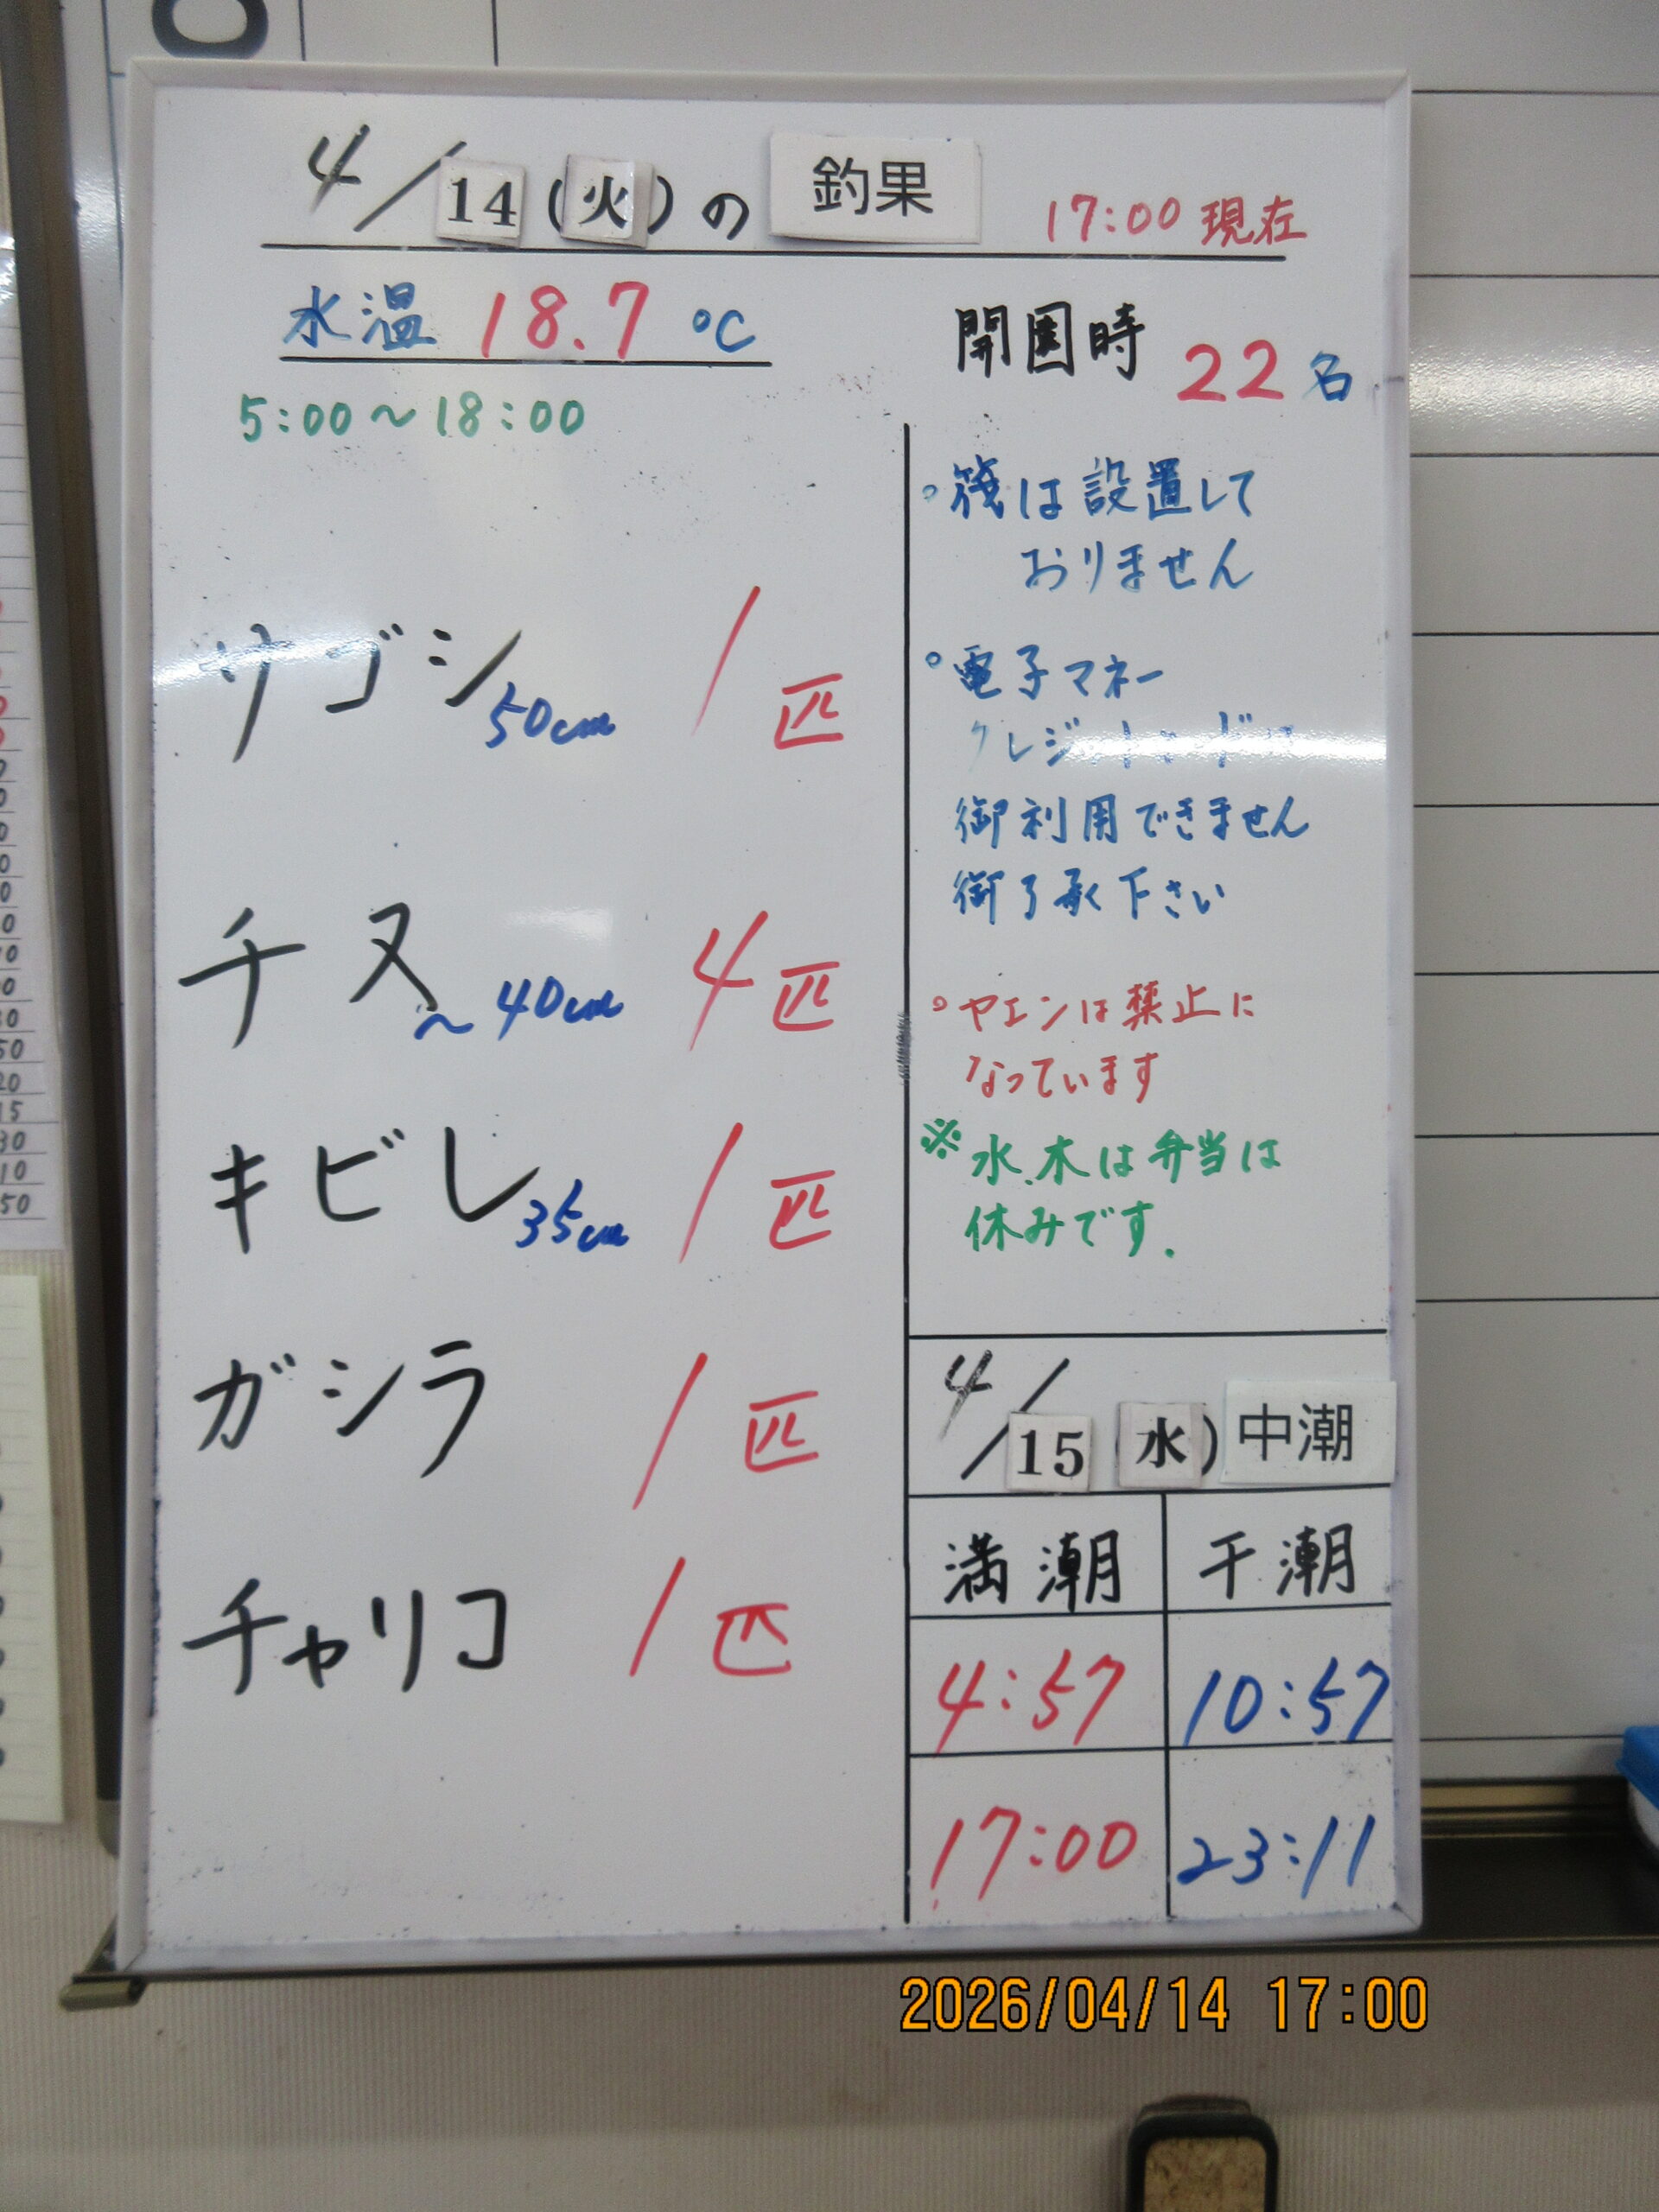 4/14(火)の 釣果 17:00 現在
水温 18.7 ℃
開園時 22名
5:00～18:00
サゴシ 50cm 1匹
チヌ ～40cm 4匹
キビレ 35cm 1匹
ガシラ 1匹
チャリコ 1匹
。筏は設置して
おりません
。電子マネー
クレジットカードは
御利用できません
御了承下さい
。ヤエンは禁止に
なっています
※水.木は弁当は
休みです.
4/15 水) 中潮
満潮 干潮
4:57 10:57
17:00 23:11
2026/04/14 17:00